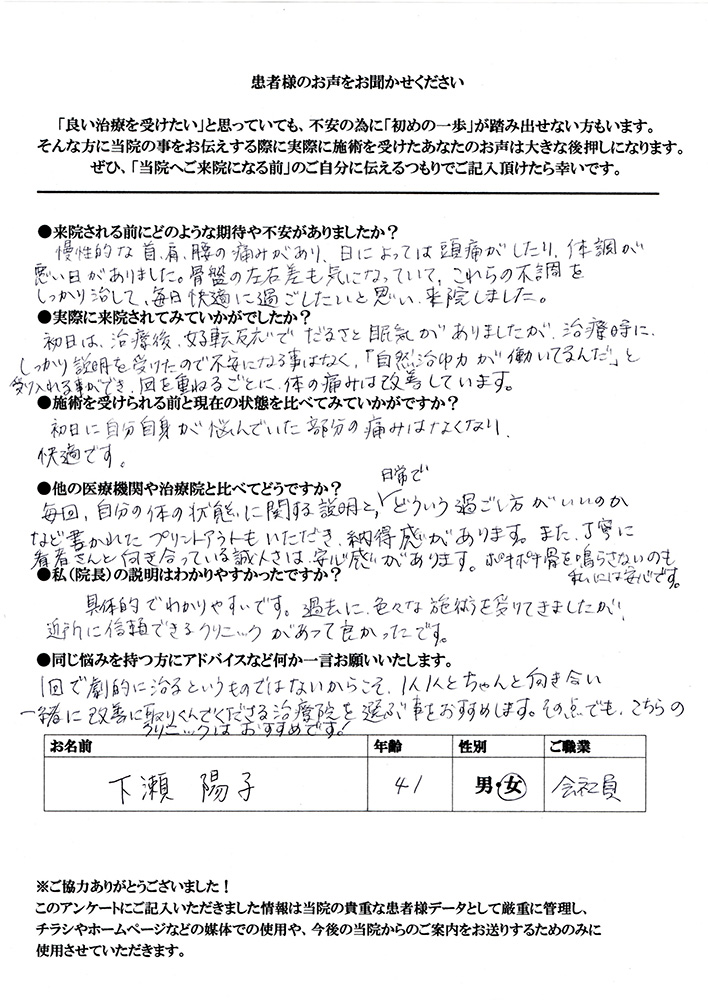 患者様のお声をお聞かせください
「良い治療を受けたい」と思っていても、不安の為に「初めの一歩」が踏み出せない方もいます。
そんな方に当院の事をお伝えする際に実際に施術を受けたあなたのお声は大きな後押しになります。
ぜひ、「当院へご来院になる前」のご自分に伝えるつもりでご記入頂けたら幸いです。
●来院される前にどのような期待や不安がありましたか？
慢性的な首、肩、腰の痛みがあり、日によっては頭痛がしたり、体調が
悪い日がありました。骨盤の左右差も気になっていて、これらの不調を
しっかり治して、毎日快適に過ごしたいと思い、来院しました。
●実際に来院されてみていかがでしたか？
初日は、治療後、好転反応でだるさと眠気がありましたが、治療時に、
しっかり説明を受けたので不安になる事はなく、「自然治ゆ力が働いてるんだ」と
受け入れる事ができ、回を重ねるごとに、体の痛みは改善しています。
●施術を受けられる前と現在の状態を比べてみていかがですか？
初日に自分自身が悩んでいた部分の痛みはなくなり、
快適です。
●他の医療機関や治療院と比べてどうですか？
毎回、自分の体の状態に関する説明と、日常でどういう過ごし方がいいのか
など書かれたプリントアウトもいただき、納得感があります。また、丁寧に
患者さんと向き合っている誠実さは、安心感があります。ボキボキ骨を鳴らさないのも
私には安心です。
●私（院長）の説明はわかりやすかったですか？
具体的でわかりやすいです。過去に、色々な施術を受けてきましたが、
近所に信頼できるクリニックがあって良かったです。
●同じ悩みを持つ方にアドバイスなど何か一言お願いいたします。
1回で劇的に治るというものではないからこそ、1人1人とちゃんと向き合い
一緒に改善に取りくんでくださる治療院を選ぶ事をおすすめします。その点でも、こちらの
クリニックはおすすめです！
お名前 年齢 性別 ご職業
下瀬 陽子 41 男・女 会社員
※ご協力ありがとうございました！
このアンケートにご記入いただきました情報は当院の貴重な患者様データとして厳重に管理し、
チラシやホームページなどの媒体での使用や、今後の当院からのご案内をお送りするためのみに
使用させていただきます。